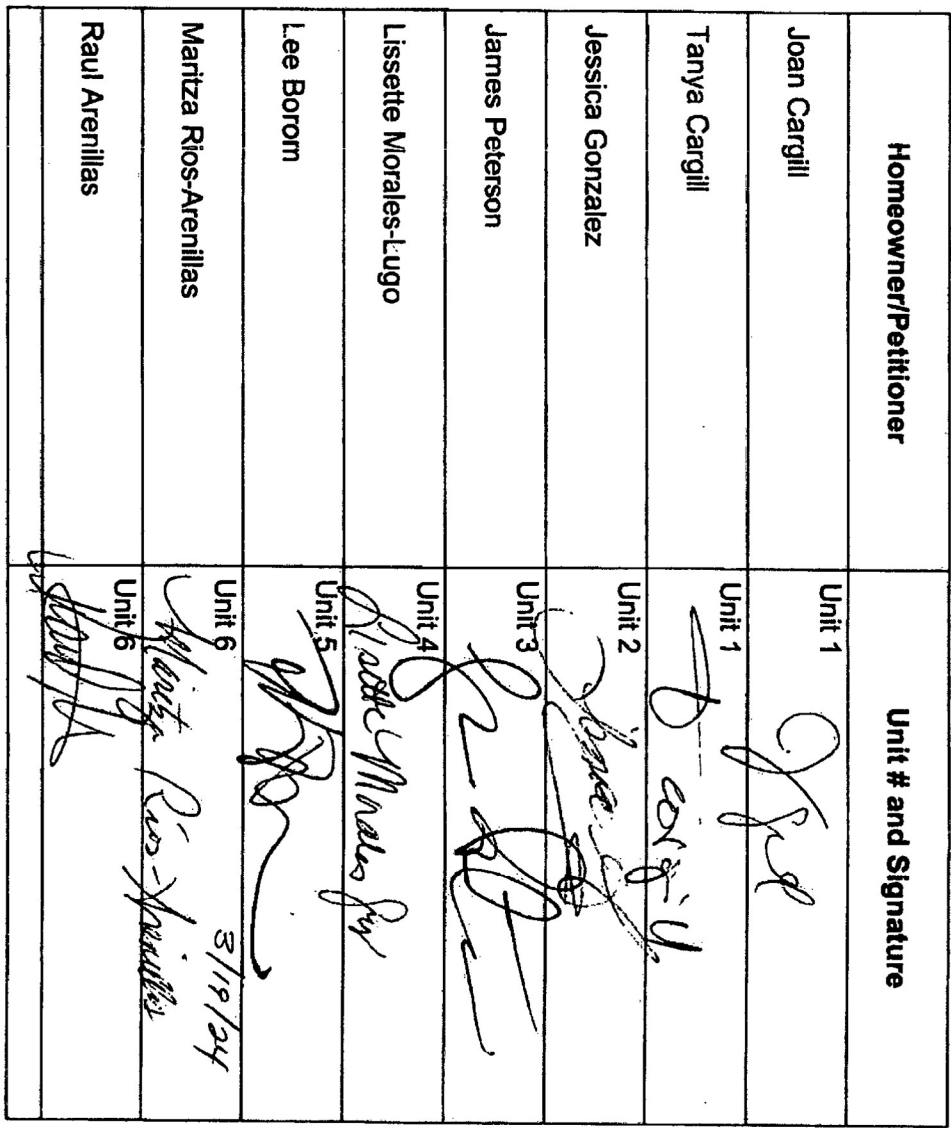 Homeowner/Petitioner Unit # and Signature
Joan Cargill Unit 1
Tanya Cargill Unit 1
Jessica Gonzalez Unit 2
James Peterson Unit 3
Lissette Morales-Lugo Unit 4
Lissette Morales
Lee Borom Unit 5
Maritza Rios-Arenillas Unit 6 3/19/24
Maritza Rios-Arenillas
Raul Arenillas Unit 6